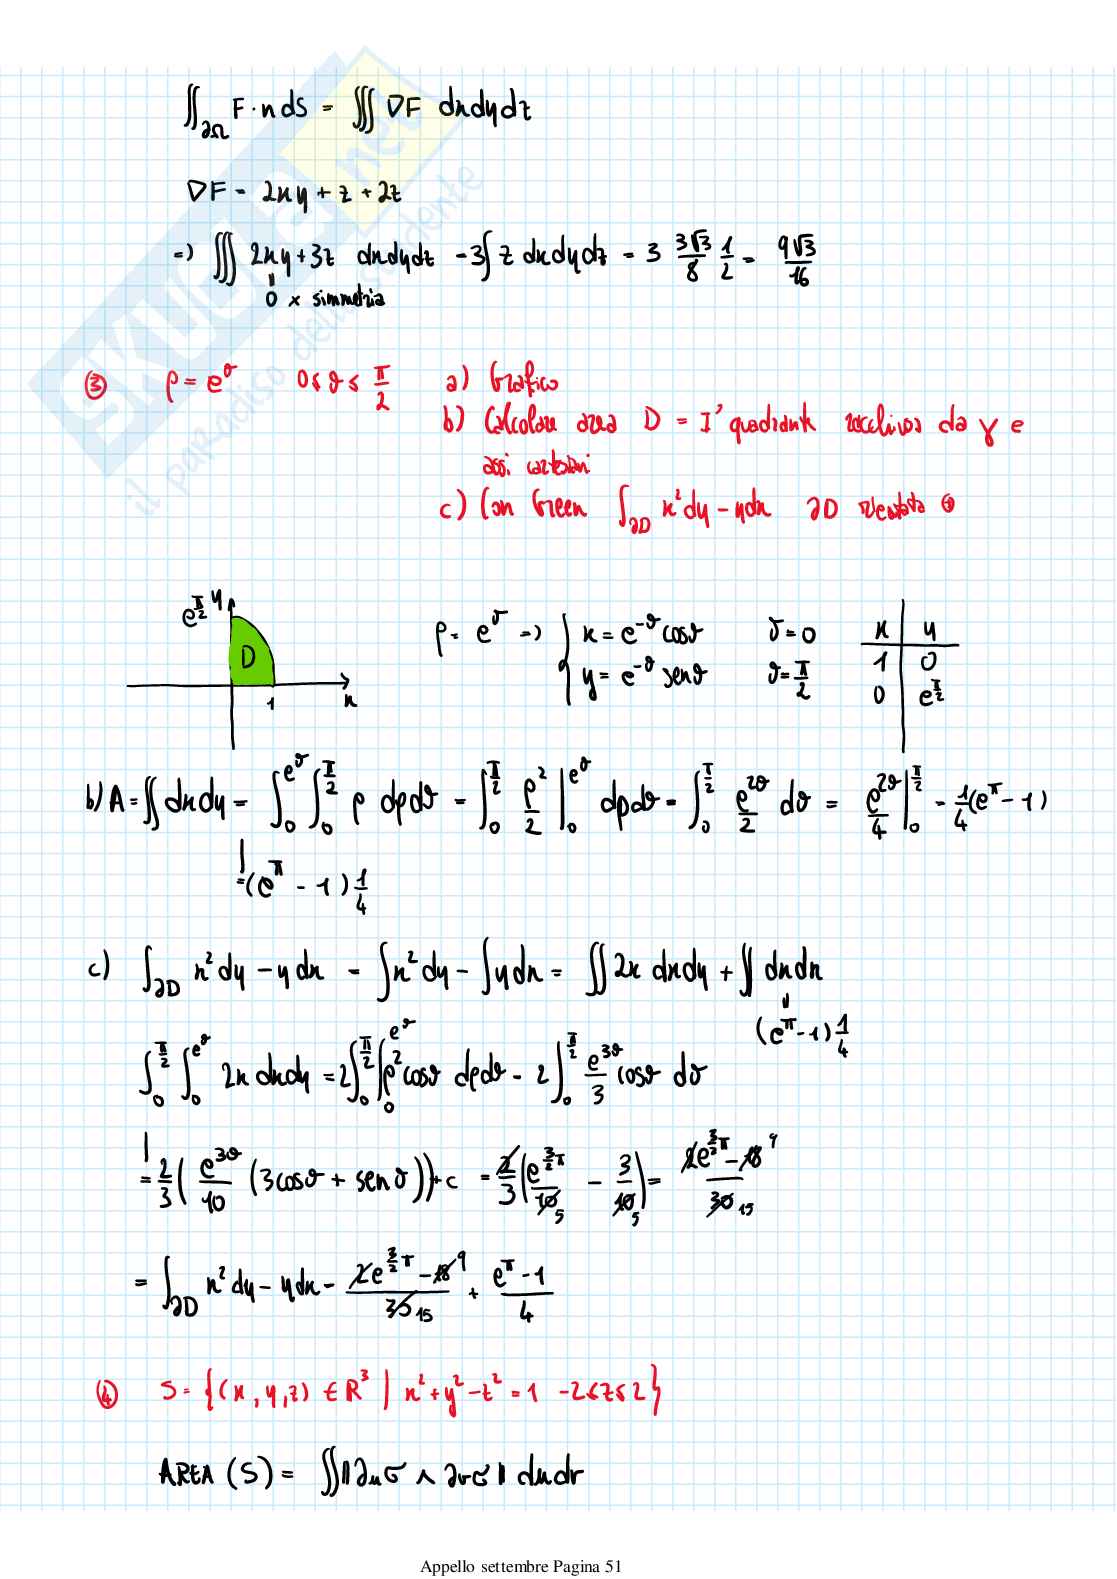 ∬_∂Ω F·n dS = ∭ ∇F dxdydz
∇F = 2xy + z + 2z
=> ∭ 2xy + 3z dxdydz = 3∫ z dxdydz = 3 3√3/8 1/2 = 9√3/16
0 x simmetria
③ ρ = e^ϑ 0 ≤ ϑ ≤ π/2 a) Grafico
b) Calcolare area D = I° quadrante racchiusa da γ e
assi cartesiani
c) Con Green ∫_∂D x² dy - y dx ∂D orientata
e^(π/2) y
D
1 x
ρ = e^ϑ => { x = e^-ϑ cosϑ ϑ = 0
y = e^-ϑ senϑ ϑ = π/2
x | y
1 | 0
0 | e^(π/2)
b) A = ∬ dxdy = ∫_0^(e^ϑ) ∫_0^(π/2) ρ dρdϑ = ∫_0^(π/2) ρ²/2 |_0^(e^ϑ) dρdϑ = ∫_0^(π/2) e^(2ϑ)/2 dϑ = e^(2ϑ)/4 |_0^(π/2) = 1/4 (e^π - 1)
= (e^π - 1) 1/4
c) ∫_∂D x² dy - y dx = ∫ x² dy - ∫ y dx = ∬ 2x dxdy + ∬ dxdx
(e^π - 1) 1/4
∫_0^(π/2) ∫_0^(e^ϑ) 2x dxdy = 2 ∫_0^(π/2) ∫_0^(e^ϑ) ρ² cosϑ dρdϑ = 2 ∫_0^(π/2) e^(3ϑ)/3 cosϑ dϑ
= 2/3 ( e^(3ϑ)/10 (3cosϑ + senϑ)) + c = 2/3 ( e^(3/2 π)/10 5 - 3/10 5 ) = 2e^(3/2 π) - 18 9 / 30 15
= ∫_∂D x² dy - y dx = 2e^(3/2 π) - 18 9 / 30 15 + e^π - 1 / 4
④ S = {(x, y, z) ∈ R³ | x² + y² - z² = 1 -2 ≤ z ≤ 2}
AREA (S) = ∬ ‖∂uσ ∧ ∂vσ‖ du dv
SKUOLA.net
il paradiso dello studente
Appello settembre Pagina 51